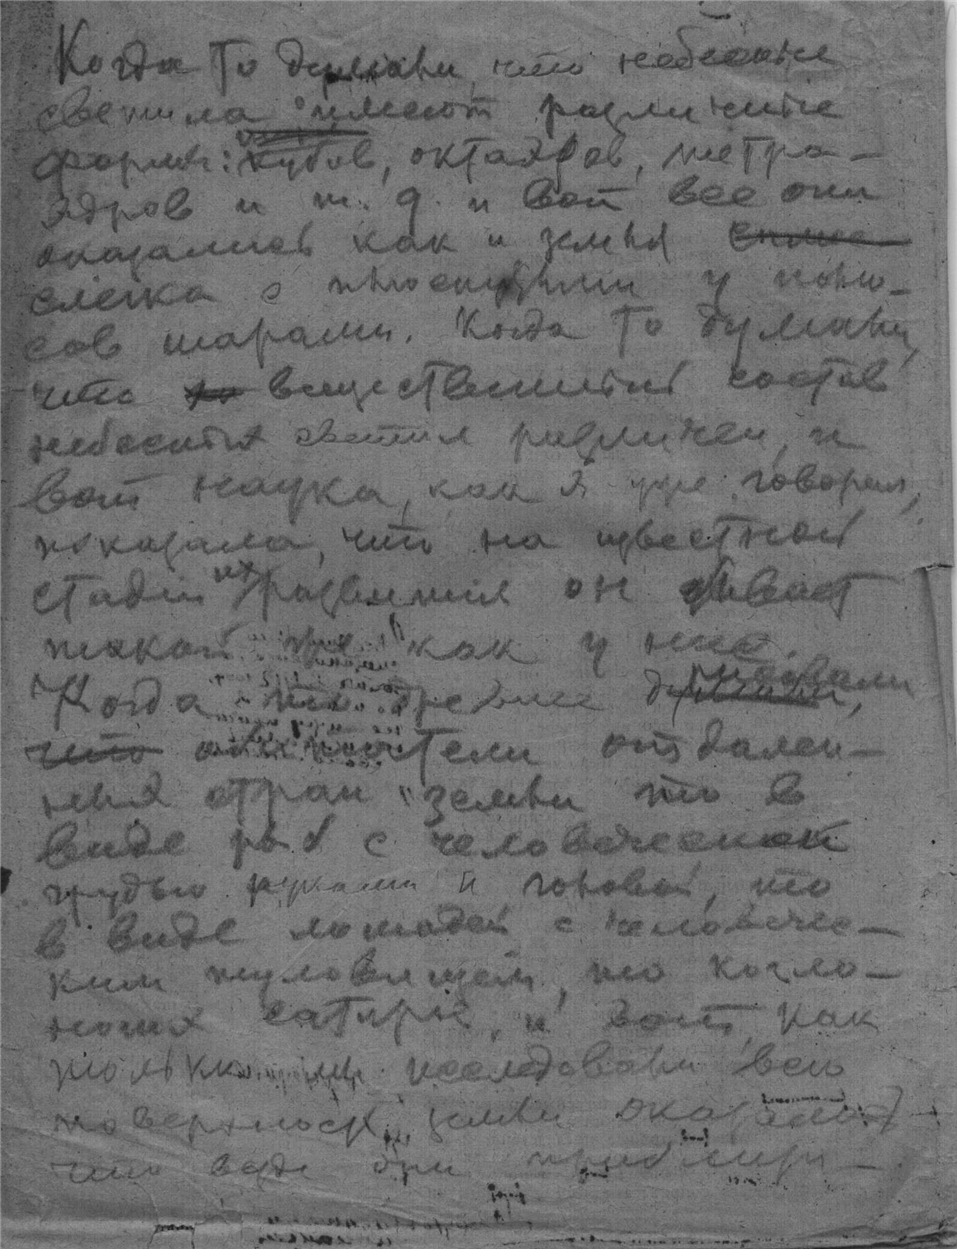 Когда то думали, что небесные
светила имеют различные
формы: кубов, октаэдров, тетра-
эдров и т. д. и вот все они
оказались как и земля
слегка с плоскими у полю-
сов шарами. Когда то думали,
что вещественный состав
небесных светил различен, и
вот наука, как я уже говорил,
показала, что на известной
стадии их развития он бывает
такой же как у нас.
Когда то древние рисовали,
что обитатели отдален-
ных стран земли то в
виде рыб с человеческой
грудью руками и головой, то
в виде лошадей с человечес-
ким туловищем, то козло-
ногих сатиров, и вот, как
только мы исследовали всю
поверхность земли оказалось
что везде они приблизи-